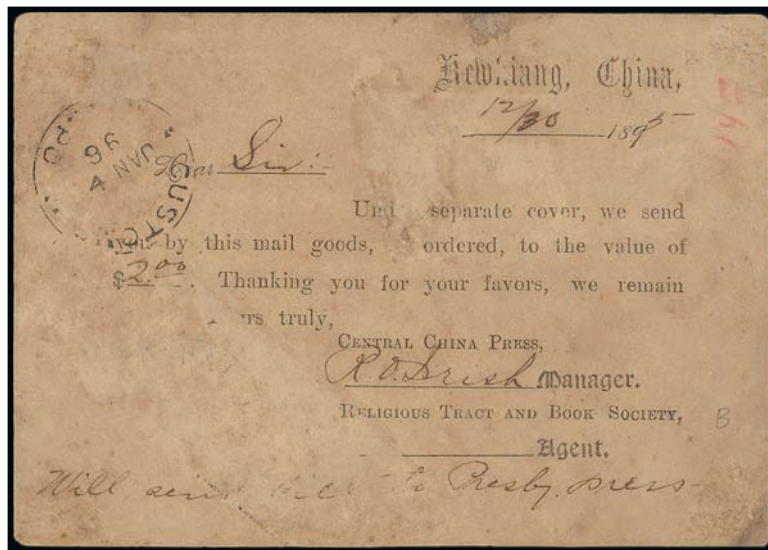 Kewkiang, China,
12/30 1895
Dear Sir:-
Und separate cover, we send
you by this mail goods, ordered, to the value of
$2.00. Thanking you for your favors, we remain
urs truly,
CENTRAL CHINA PRESS,
Manager.
RELIGIOUS TRACT AND BOOK SOCIETY,
Agent.
Will send to Presby. press
CUSTO
JAN 4
96
B